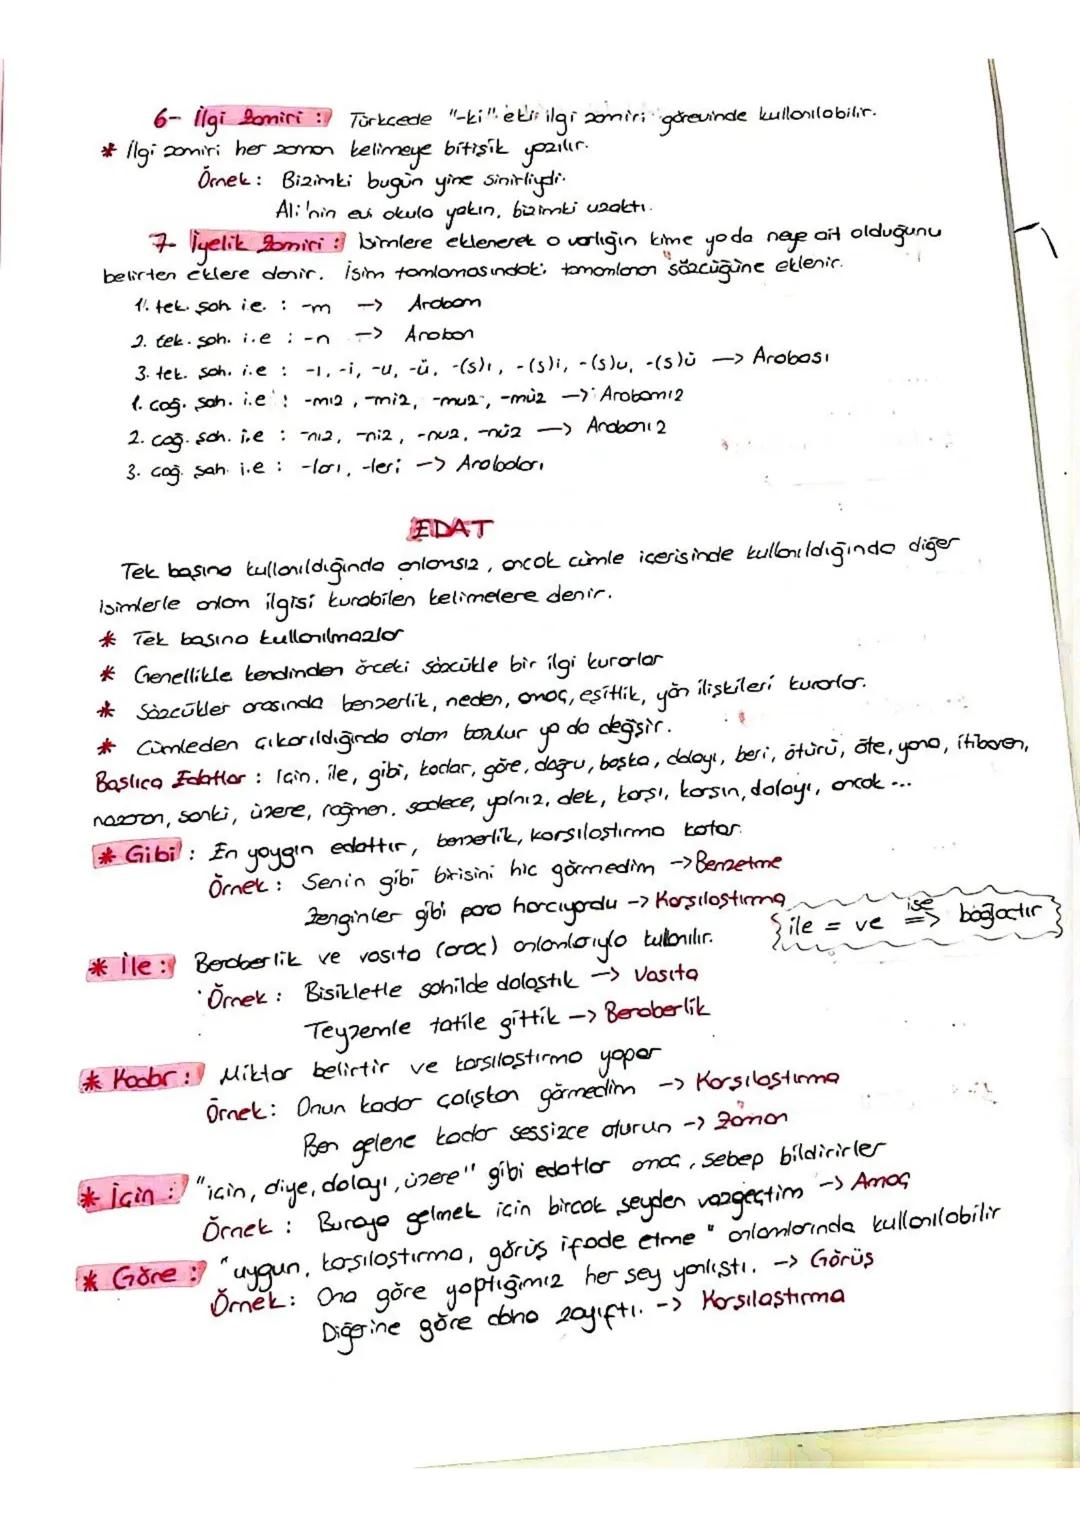 6- İlgi Zamiri : Türkcede "-ki" eki ilgi zamiri görevinde kullanılabilir.
* İlgi zamiri her zaman kelimeye bitişik yazılır.
Örnek : Bizimki bugün yine sinirliydi.
Ali'nin evi okula yakın, bizimki uzaktı.
7- İyelik Zamiri : İsimlere eklenerek o varlığın kime ya da neye ait olduğunu
belirten eklere denir. İsim tamlamasındaki tamamlanan sözcüğüne eklenir.
1. tek. şah i.e. : -m -> Arabam
2. tek. şah. i.e : -n -> Araban
3. tek. şah. i.e : -ı, -i, -u, -ü, -(s)ı, -(s)i, -(s)u, -(s)ü -> Arabası
1. çoğ. şah. i.e : -mız, -miz, -muz, -müz -> Arabamız
2. çoğ. şah. i.e : -nız, -niz, -nuz, -nüz -> Arabanız
3. çoğ. şah i.e : -ları, -leri -> Arabaları
EDAT
Tek başına kullanıldığında anlamsız, ancak cümle içerisinde kullanıldığında diğer
isimlerle anlam ilgisi kurabilen kelimelere denir.
* Tek başına kullanılmazlar
* Genellikle kendinden önceki sözcükle bir ilgi kurarlar
* Sözcükler arasında benzerlik, neden, amaç, eşitlik, yön ilişkileri kurarlar.
* Cümleden çıkarıldığında anlam bozulur ya da değişir.
Başlıca Edatlar : İçin, ile, gibi, kadar, göre, doğru, başka, dolayı, beri, ötürü, öte, yana, itibaren,
nazaran, sanki, üzere, rağmen, sadece, yalnız, dek, karşı, karşın, dolayı, ancak ...
* Gibi : En yaygın edattır, benzerlik, karşılaştırma katar.
Örnek : Senin gibi birisini hic görmedim -> Benzetme
Zenginler gibi para harcıyordu -> Karşılaştırma
ile = ve ise => bağlaçtır
* İle : Beraberlik ve vasıta (araç) anlamlarıyla kullanılır.
Örnek : Bisikletle sahilde dolaştık -> Vasıta
Teyzemle tatile gittik -> Beraberlik
* Kadar : Miktar belirtir ve karşılaştırma yapar
Örnek : Onun kadar çalışkan görmedim -> Karşılaştırma
Ben gelene kadar sessizce oturun -> Zaman
* İçin : "için, diye, dolayı, üzere" gibi edatlar amaç, sebep bildirirler
Örnek : Buraya gelmek için bircok şeyden vazgeçtim -> Amaç
* Göre : "uygun, karşılaştırma, görüş ifade etme" anlamlarında kullanılabilir
Örnek : Ona göre yaptığımız her şey yanlıştı. -> Görüş
Diğerine göre daha zayıftı. -> Karşılaştırma